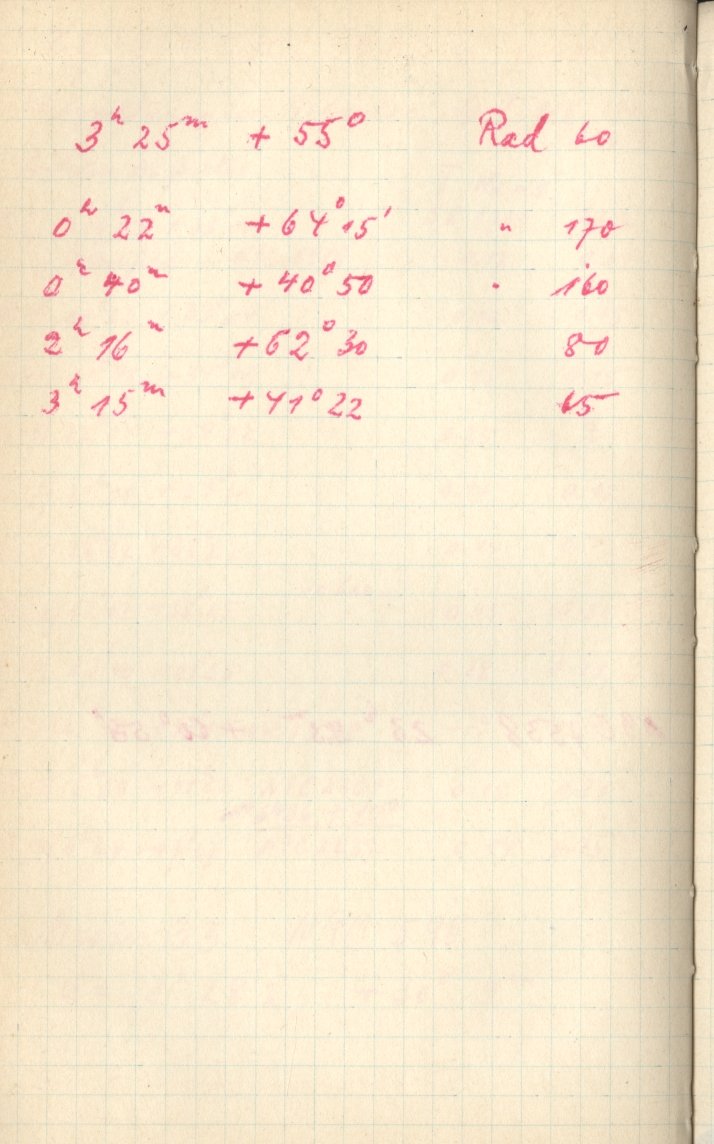 3ʰ 25ᵐ + 55° Rad 60
0ʰ 22ᵐ + 64° 15' " 170
0ʰ 40ᵐ + 40° 50 " 160
2ʰ 16ᵐ + 62° 30 80
3ʰ 15ᵐ + 41° 22